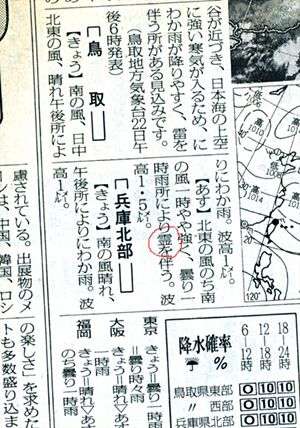 谷が近づき、日本海の上空
に強い寒気が入るため、に
わか雨が降りやすく、雷を
伴う所がある見込みです。
（鳥取地方気象台22日午
後6時発表）
鳥取
【きょう】南の風、日中
北東の風、晴れ午後所によ
りにわか雨。波高1㍍。
【あす】北東の風のち南
の風一時やや強く、曇り一
時雨所により霊を伴う。波
高1・5㍍。
兵庫北部
【きょう】南の風晴れ、
午後所によりにわか雨。波
高1㍍。
降水確率%
6 12 18
12 18 24
鳥取県東部 0 10 10
〃 西部 0 10 10
兵庫県北部 0 10 10
東京
きょう＝曇り一時
＝曇り時々雨
大阪
きょう＝晴れ▽あ
一時雨
福岡
きょう＝晴れ▽あ
のち曇り一時雨
慮されている。出展物のメ
ンは、中国、韓国、ロシ
の楽しさ」を求めた
トも多数盛り込ま
120°